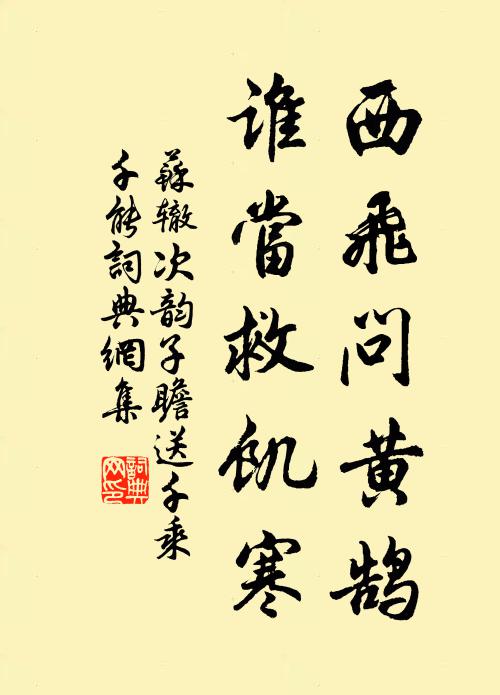 西飛問黄鹄
誰當救飢寒
蘇辙次韵子瞻送千乘
千能詞典網集
詞典
网印